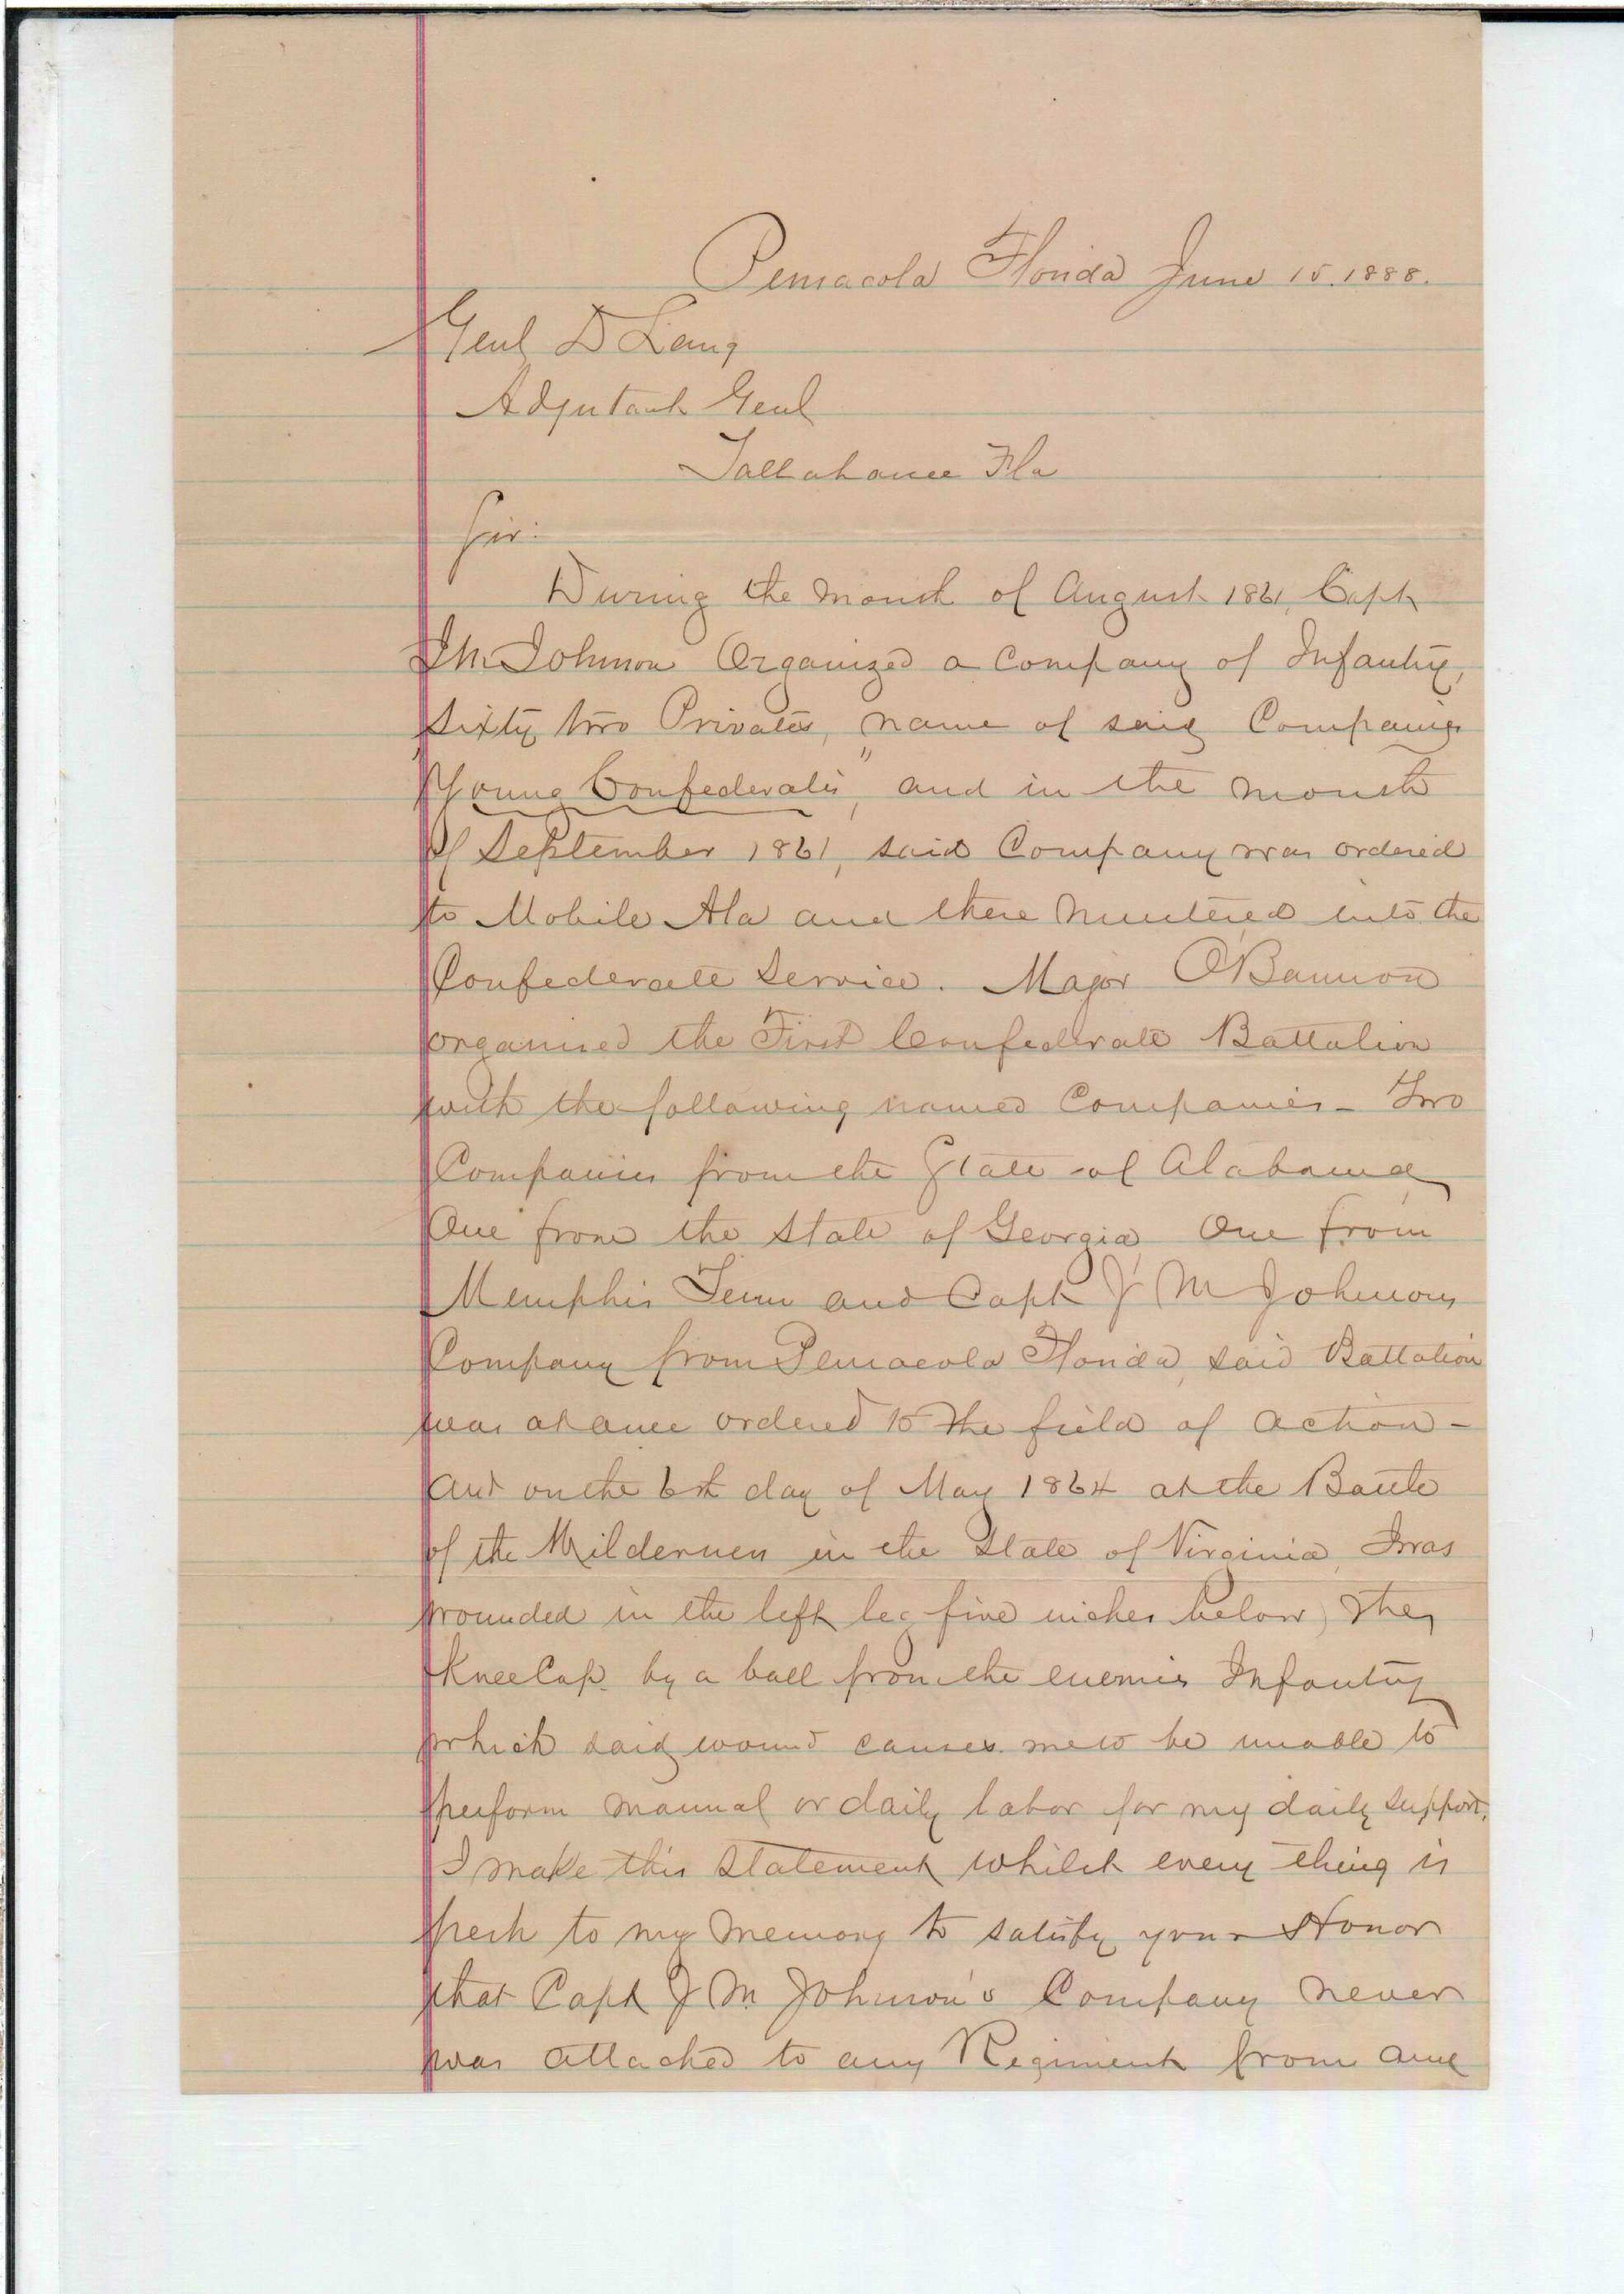 Pensacola Florida June 15. 1888.
Genl D Lang
Adjutant Genl
Tallahassee Fla
Sir:
During the month of August 1861, Capt
J M Johnson Organized a Company of Infantry,
Sixty two Privates, name of said Company
"Young Confederates", and in the month
of September 1861, said Company was ordered
to Mobile Ala and there mustered into the
Confederate Service. Major O'Bannon
organised the First Confederate Battalion
with the following named Companies - Two
Companies from the State of Alabama
One from the State of Georgia, One from
Memphis Tenn and Capt J M Johnsons
Company from Pensacola Florida, said Battalion
was at once ordered to the field of action -
and on the 6th day of May 1864 at the Battle
of the Wilderness in the State of Virginia, I was
wounded in the left leg five inches below, the
Knee Cap by a ball from the enemies Infantry
which said wound causes me to be unable to
perform manual or daily labor for my daily support.
I make this Statement whilst every thing is
fresh to my memory to satisfy your Honor
that Capt J M Johnson's Company never
was attached to any Regiment from any